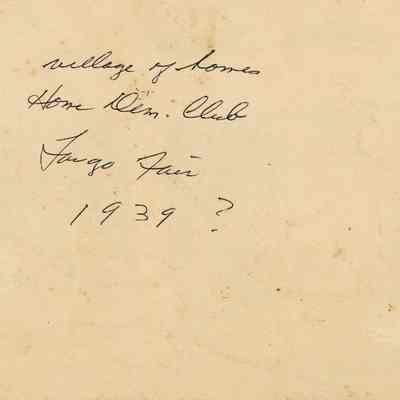 village of homes
Home Dem. Club
Fargo Fair
1939 ?